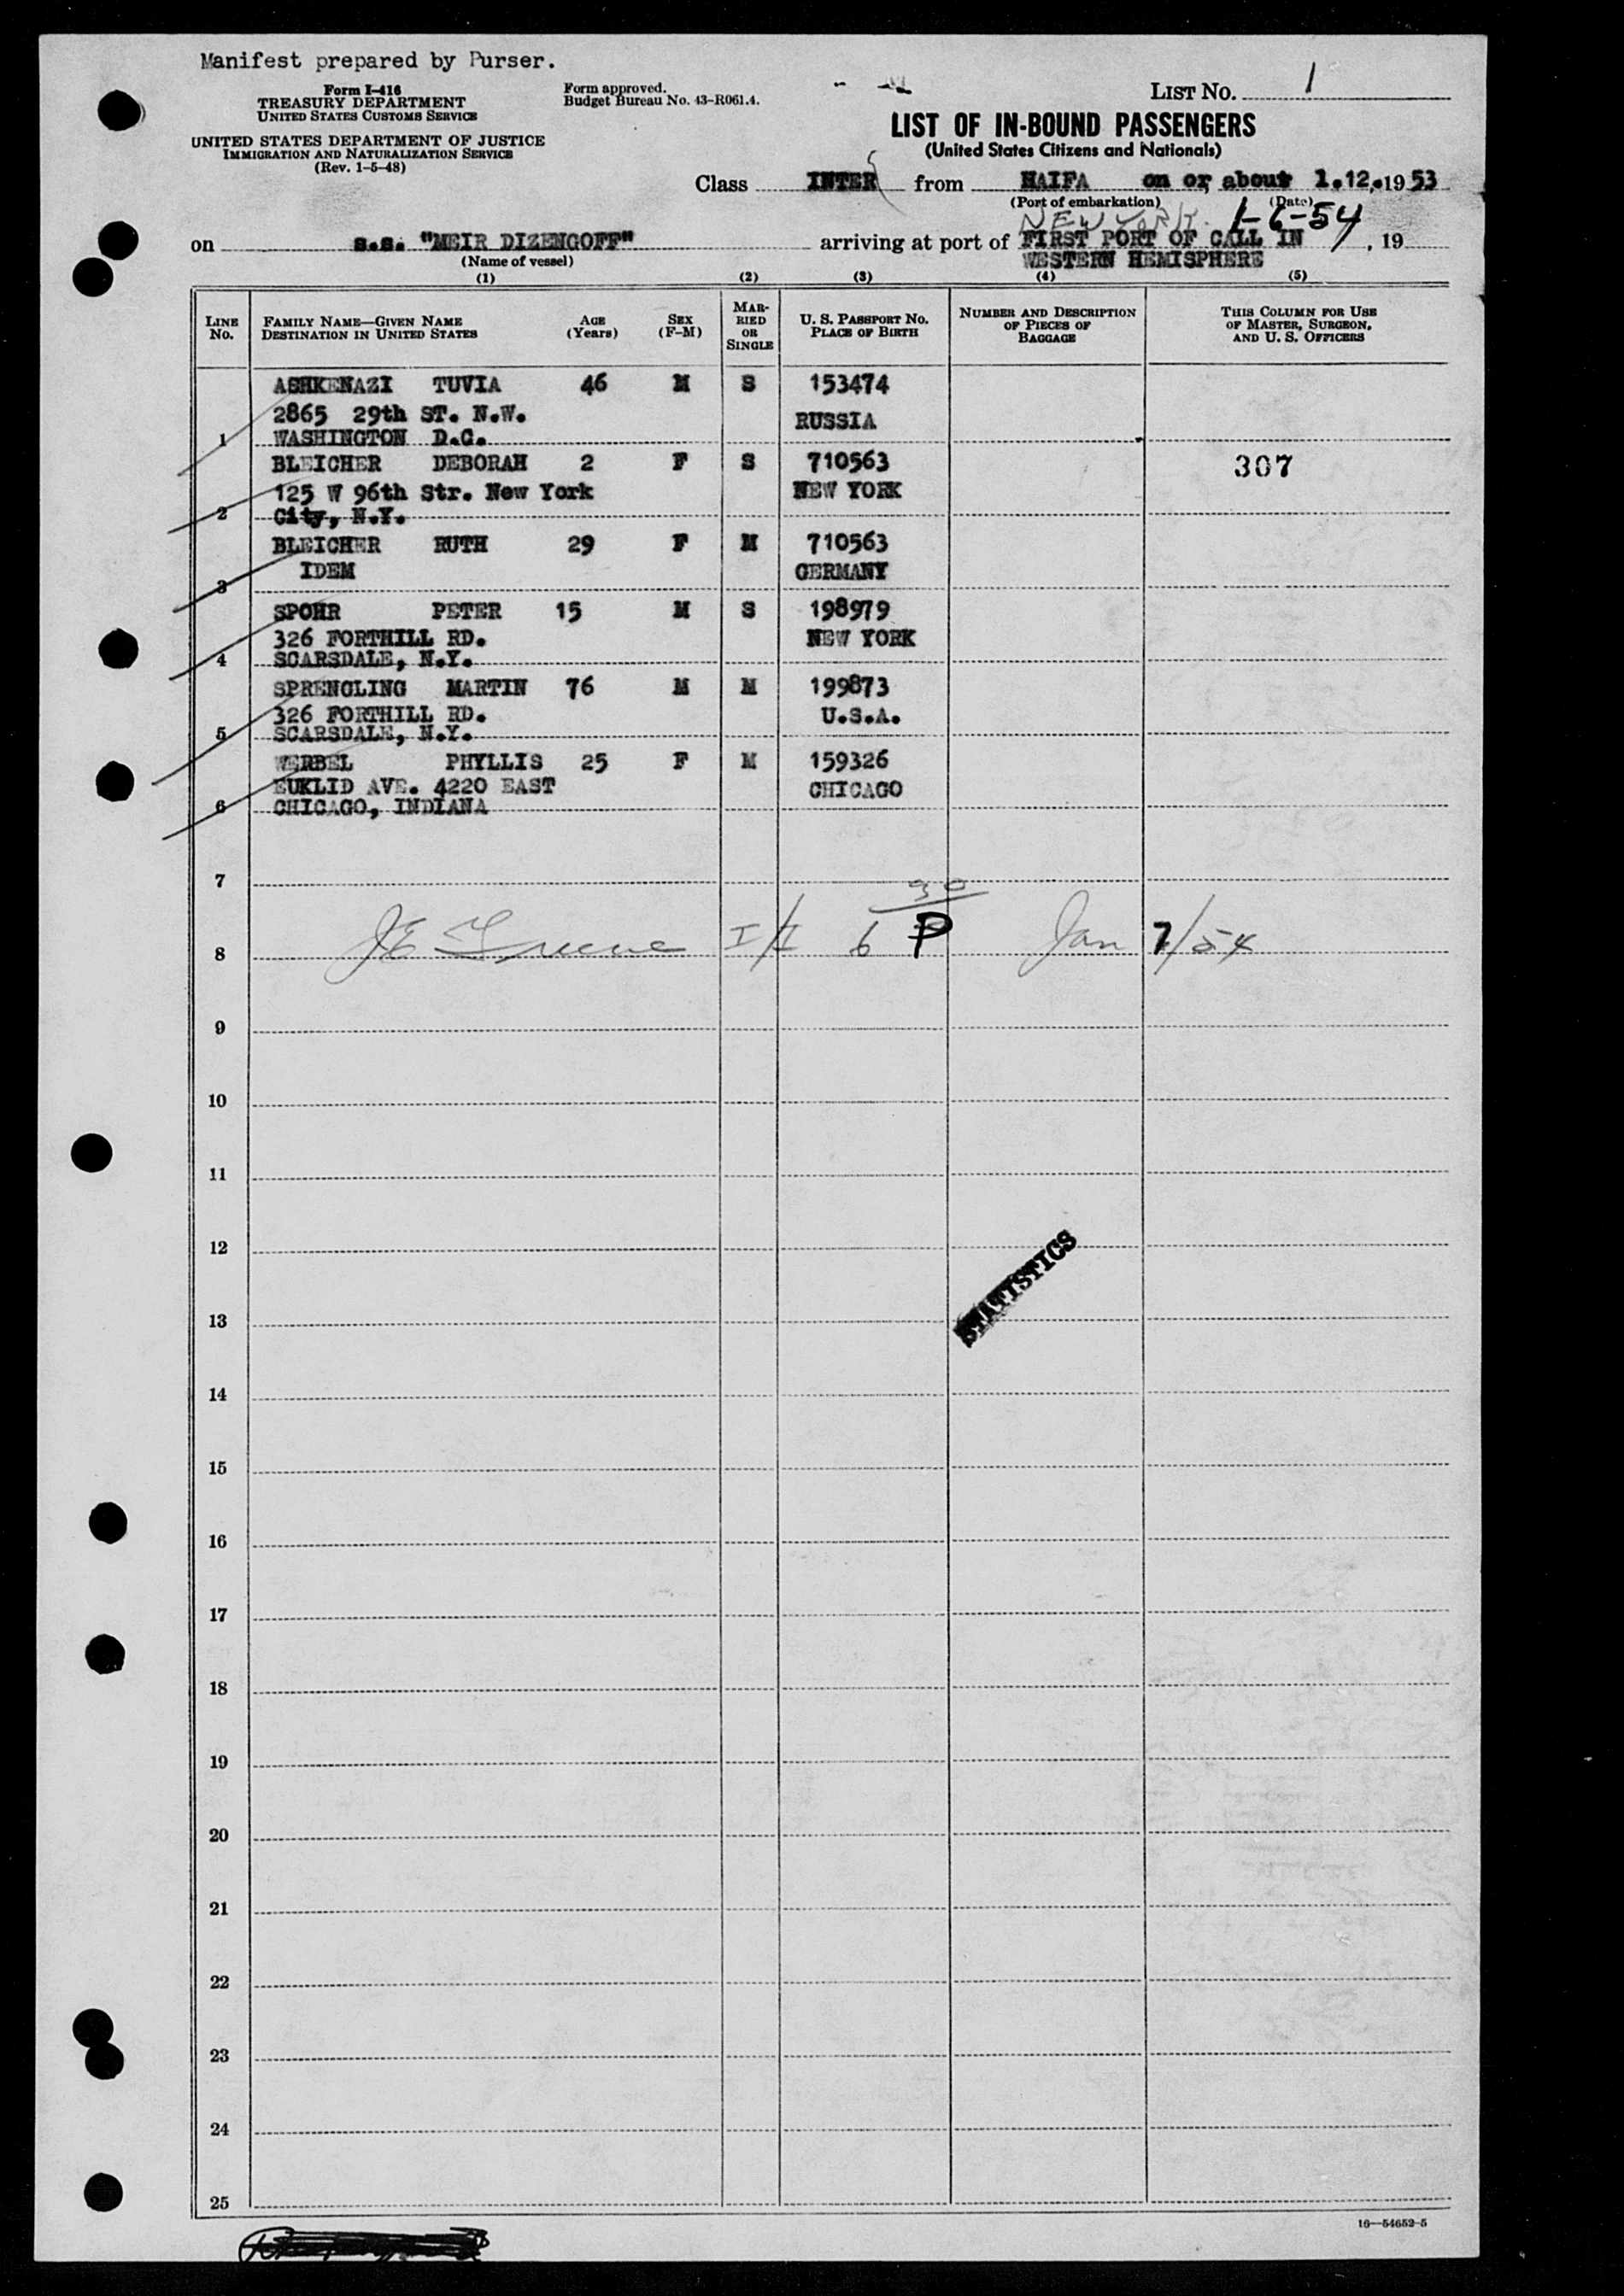 Manifest prepared by Purser.
Form I-416
TREASURY DEPARTMENT
UNITED STATES CUSTOMS SERVICE
UNITED STATES DEPARTMENT OF JUSTICE
IMMIGRATION AND NATURALIZATION SERVICE
(Rev. 1-5-48)
Form approved.
Budget Bureau No. 43-R061.4.
LIST NO. 1
LIST OF IN-BOUND PASSENGERS
(United States Citizens and Nationals)
Class INTER from HAIFA on or about 1.12.1953
(Port of embarkation) (Date)
NEW YORK 1-6-54
on s.s. "MEIR DIZENGOFF" arriving at port of FIRST PORT OF CALL IN , 19
(Name of vessel) WESTERN HEMISPHERE
(1) (2) (3) (4) (5)
LINE NO.
FAMILY NAME—GIVEN NAME
DESTINATION IN UNITED STATES
AGE (Years)
SEX (F-M)
MARRIED OR SINGLE
U. S. PASSPORT NO.
PLACE OF BIRTH
NUMBER AND DESCRIPTION
OF PIECES OF
BAGGAGE
THIS COLUMN FOR USE
OF MASTER, SURGEON,
AND U. S. OFFICERS
ASHKENAZI TUVIA 46 M S 153474
2865 29th ST. N.W. RUSSIA
1 WASHINGTON D.C.
BLEICHER DEBORAH 2 F S 710563 307
125 W 96th Str. New York NEW YORK
2 City, N.Y.
BLEICHER RUTH 29 F M 710563
IDEM GERMANY
3
SPOHR PETER 15 M S 198979
326 FORTHILL RD. NEW YORK
4 SCARSDALE, N.Y.
SPRENGLING MARTIN 76 M M 199873
326 FORTHILL RD. U.S.A.
5 SCARSDALE, N.Y.
WERBEL PHYLLIS 25 F M 159326
EUKLID AVE. 4220 EAST CHICAGO
6 CHICAGO, INDIANA
7
8 JE Greene I/I 6 30 P Jan 7/54
9
10
11
12
STATISTICS
13
14
15
16
17
18
19
20
21
22
23
24
25
16—54652-5